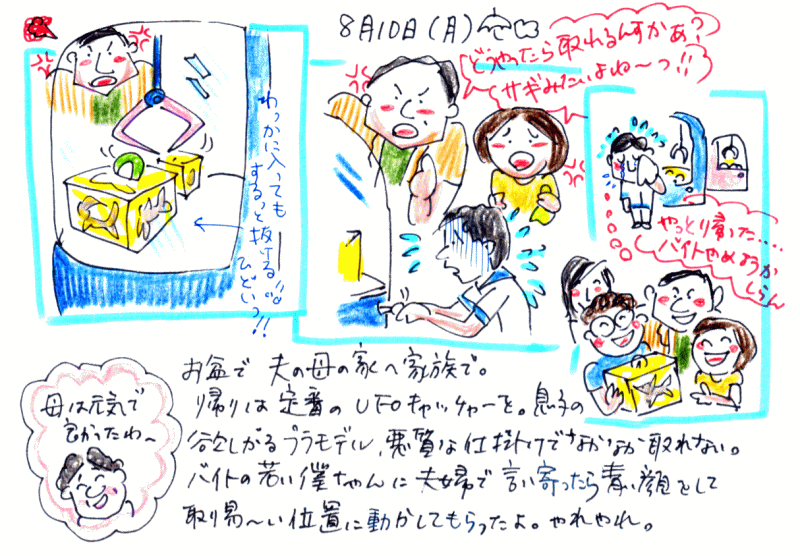 8月10日(月)
わっかに入っても
するっと抜ける!!
ひどいっ!!
どうやったら取れるんすかあ?
サギみたいよね〜っ!!
やっとり寄った....
バイトやめようか
しらん
母は元気で
良かったわ〜
お盆で 夫の母の家へ家族で。
帰りは定番のUFOキャッチャーを。息子の
欲しがるプラモデル、悪質な仕掛けでなかなか取れない。
バイトの若い僕ちゃんに夫婦で言い寄ったら青い顔をして
取り易〜い位置に動かしてもらったよ。やれやれ。